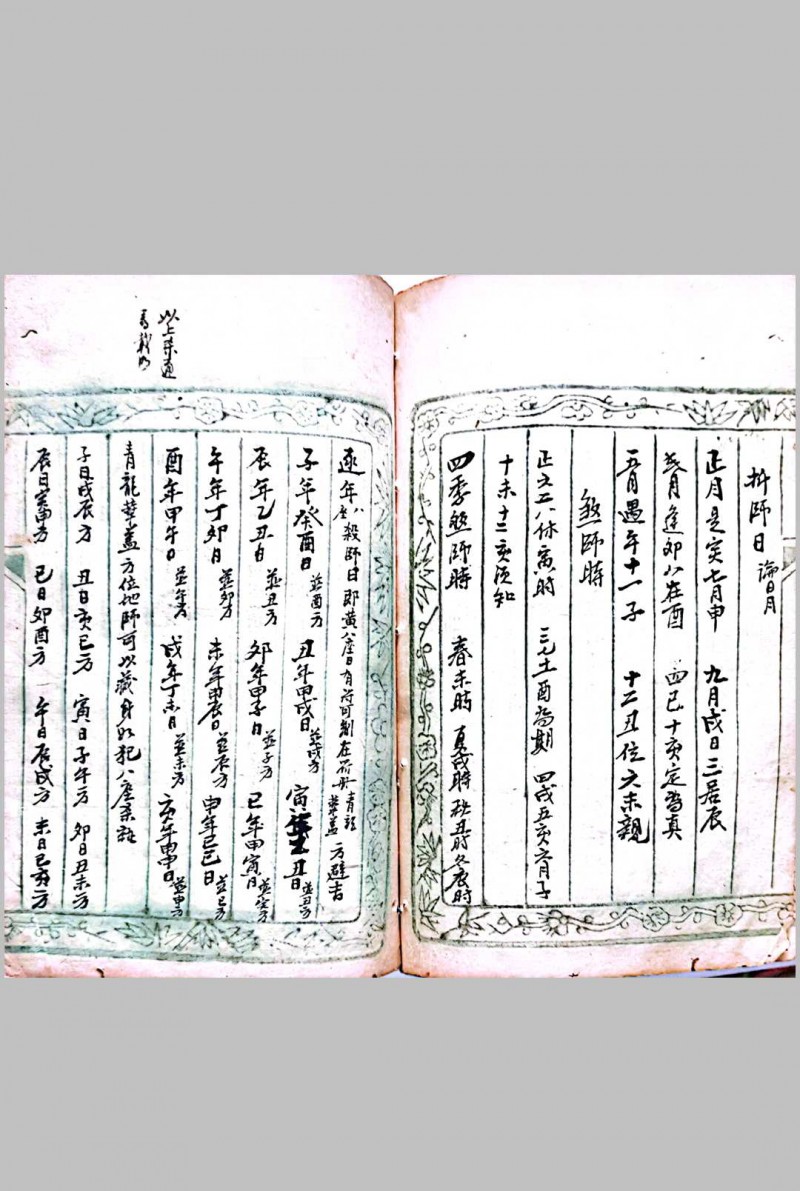 師日 論日月
正月是亥七月申 九月戌日三居辰
月逢卯八在酉 四巳十亥定為真
五月遇午十一子 十二丑位六未親
煞師時
正文二八休寓時 三九土酉為期 四戌五亥六月子
十未十二亥須知
四季煞師時 春未時 夏戌時 秋丑時 冬辰時
逐年八座殺師日即黃八座日有符可制在符册青龍華蓋方避吉
子年癸酉日並酉方 丑年甲戌日並戌方 寅年 丑日並丑方
辰年乙丑日並丑方 卯年甲子日並子方 巳年甲寅日並寅方
午年丁卯日並卯方 未年甲辰日並辰方 申年己巳日並巳方
酉年甲午日並午方 戌年丁未日並未方 亥年甲申日並申方
青龍華蓋方位他師可以藏身如犯八座
子日戌辰方 丑日亥巳方 寅日子午方 卯日丑未方
辰日寅申方 巳日卯酉方 午日辰戌方 未日巳亥方
以上